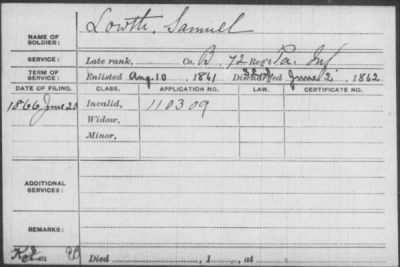 Lowth, Samuel
NAME OF SOLDIER:
SERVICE: Late rank, Co. B, 72 Reg't Pa. Inf
TERM OF SERVICE: Enlisted Aug. 10, 1861 Discharged June 2, 1862
DATE OF FILING. CLASS. APPLICATION NO. LAW. CERTIFICATE NO.
1866 June 20 Invalid, 110309
Widow,
Minor,
ADDITIONAL SERVICES:
REMARKS:
Died , 1 , at